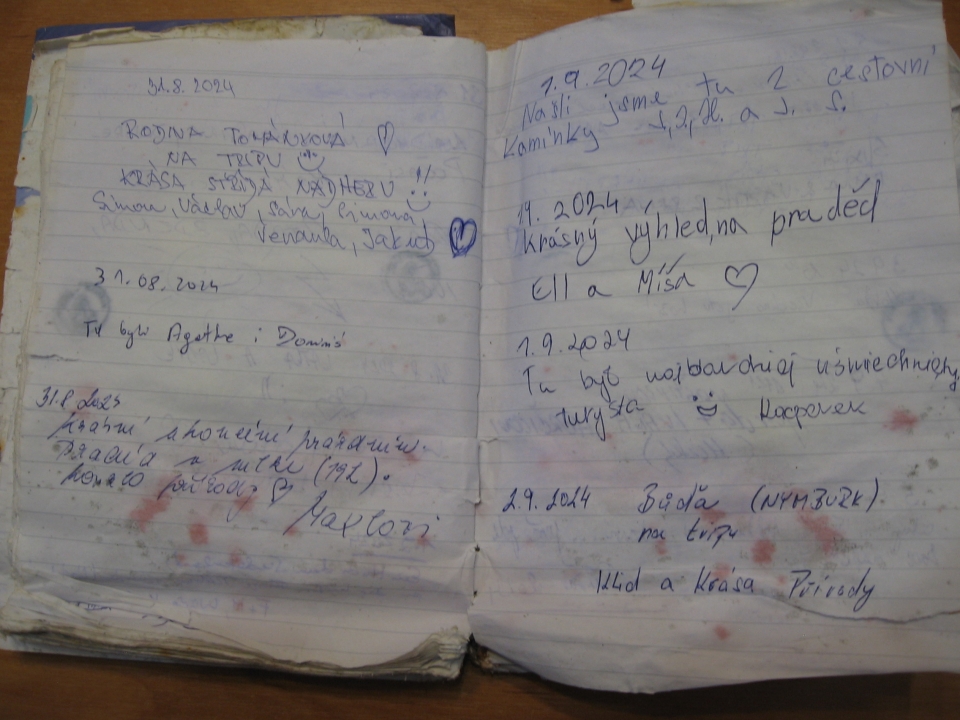 31.8.2024
RODINA TOMÁNKOVÁ
NA TRIPU
KRÁSA STŘÍDÁ NÁDHERU
Simon, Václav, Sára, Simona,
Jakub
31.08.2024
Tu byli Agathe i
31.8.2023
prázdnin.
(19L).
přírody
1.9.2024
Našli jsme tu 2 cestovní
kamínky J, J, H. a J. S.
19. 2024
Krásný výhled, na praděd
Ell a Míša
1.9.2024
Tu był najbardziej uśmiechnięty
turysta Kacperek
2.9.2024 Búďa (NYMBURK)
na tripu
Klid a Krása Přírody